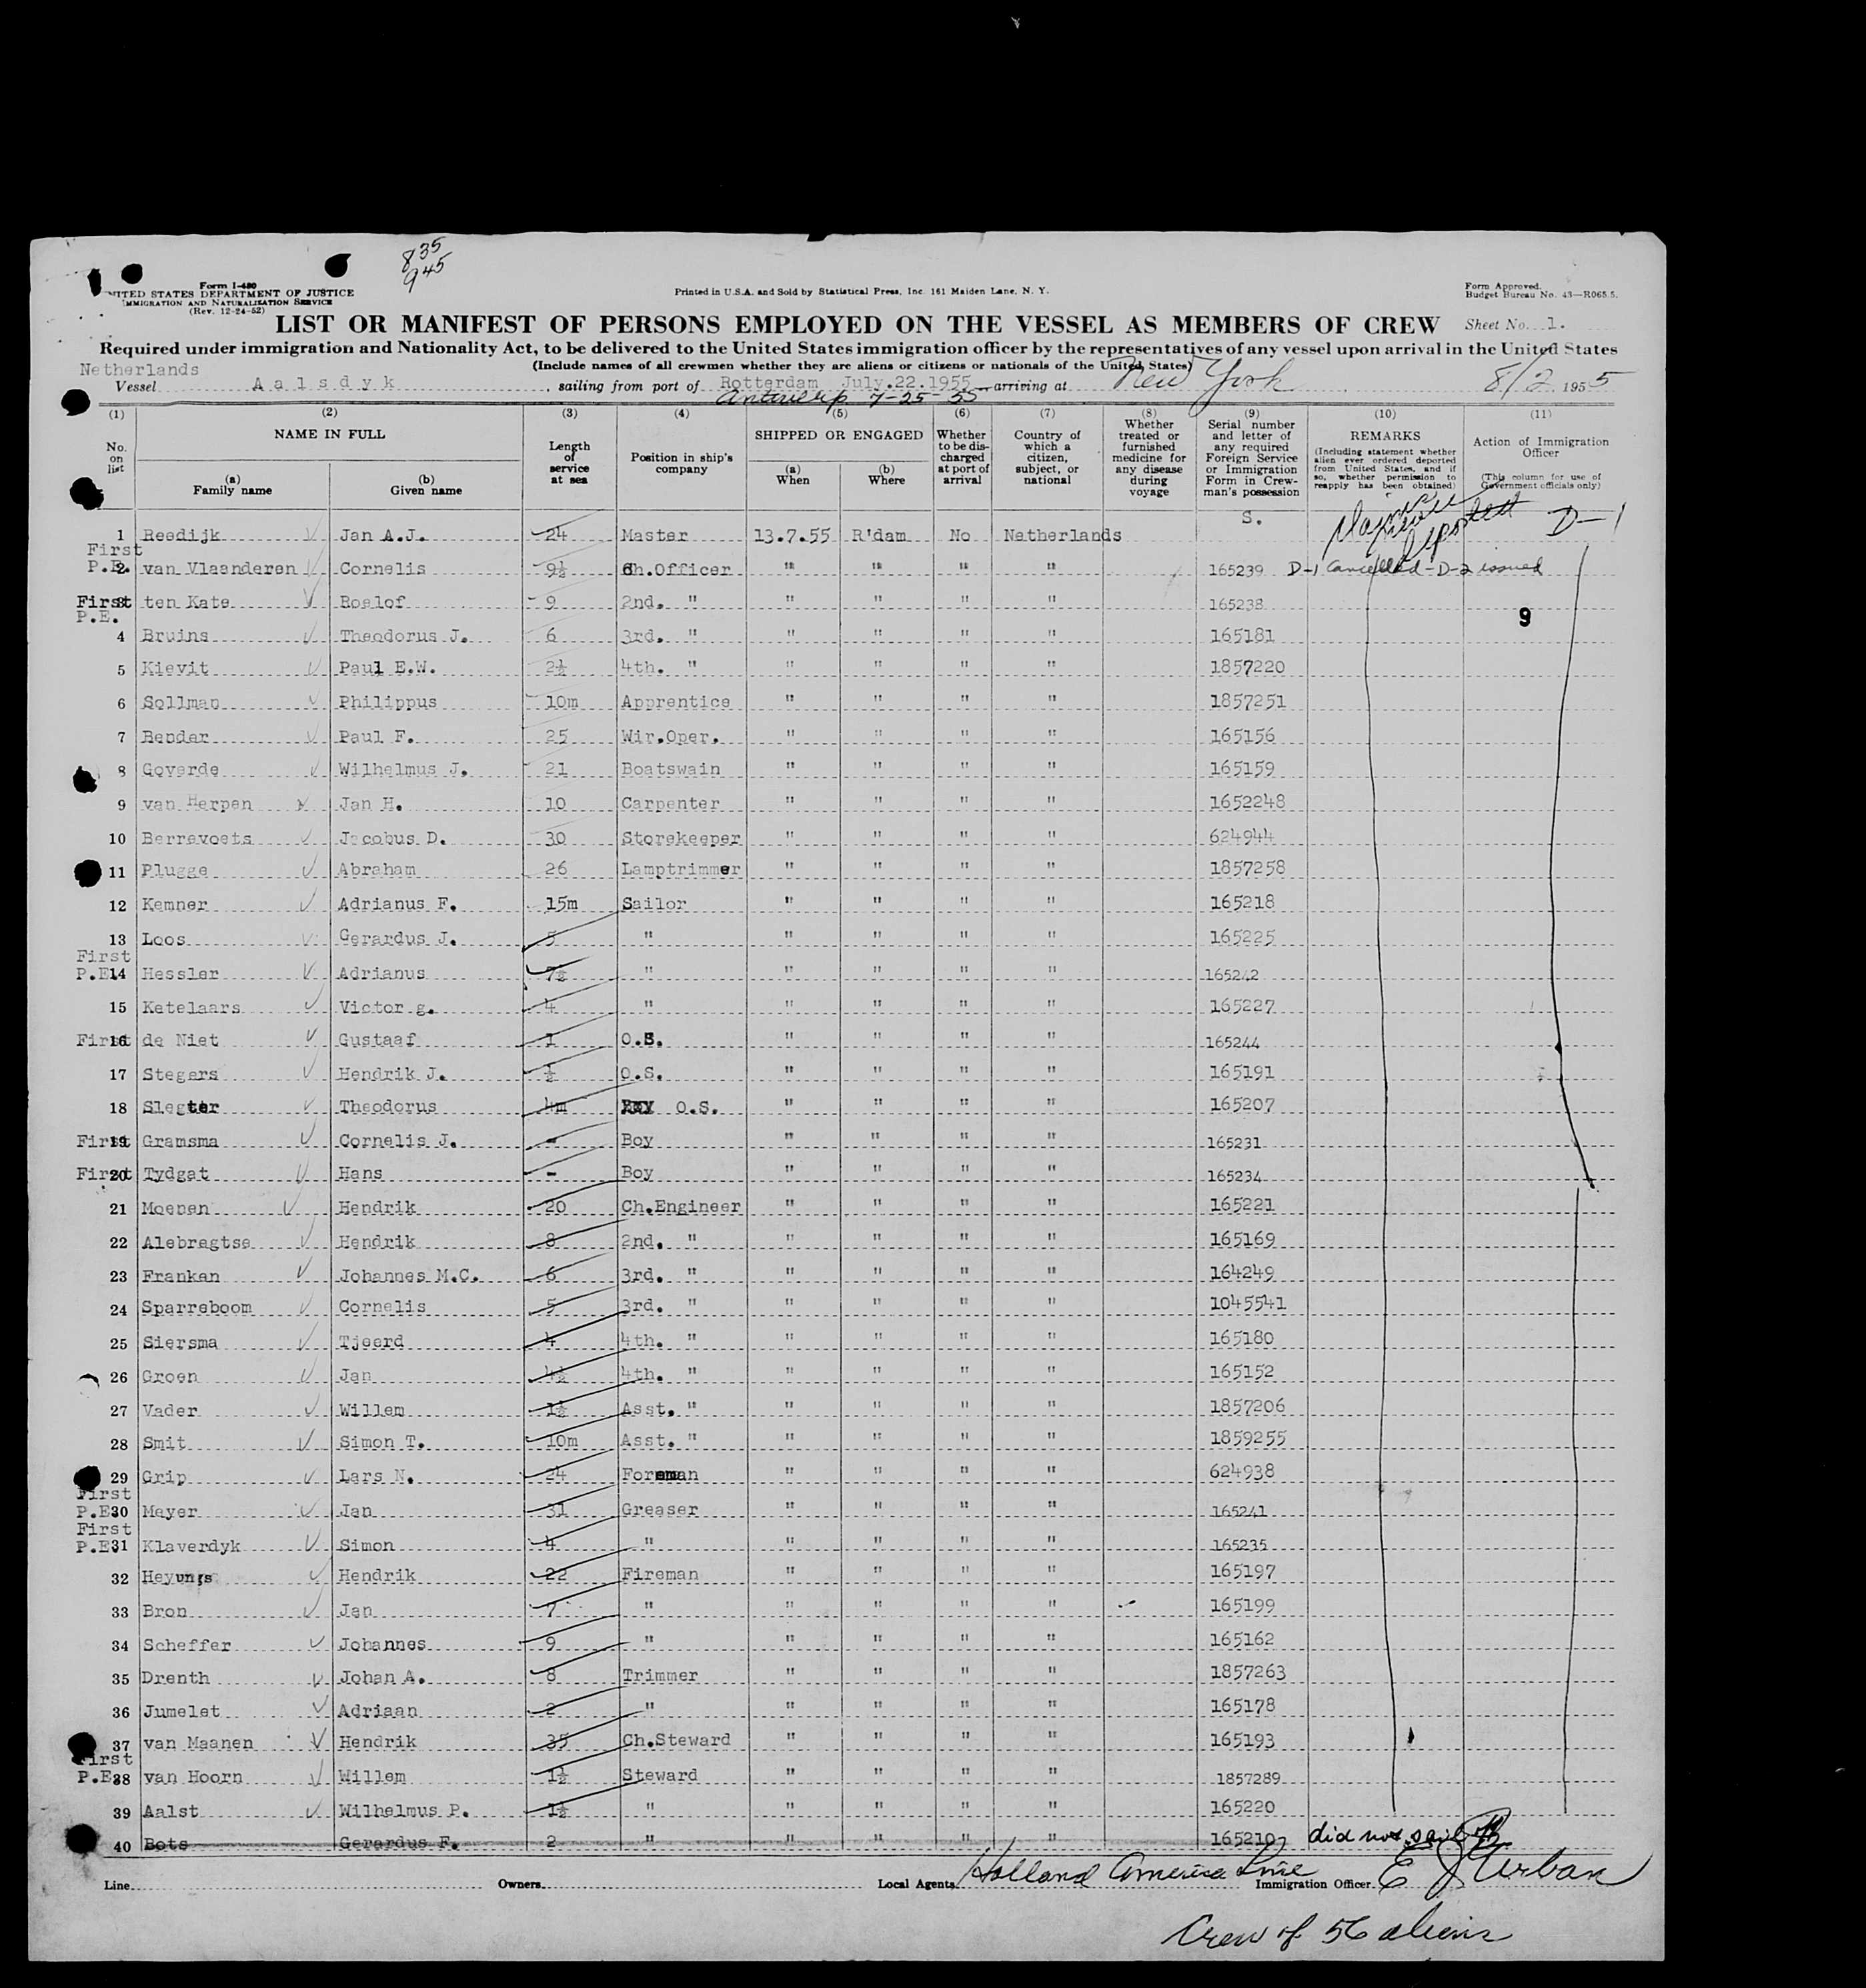 835
945
Form I-480
UNITED STATES DEPARTMENT OF JUSTICE
IMMIGRATION AND NATURALIZATION SERVICE
(Rev. 12-24-52)
Printed in U.S.A. and Sold by Statistical Press, Inc. 161 Maiden Lane, N. Y.
Form Approved.
Budget Bureau No. 43—R065.5.
LIST OR MANIFEST OF PERSONS EMPLOYED ON THE VESSEL AS MEMBERS OF CREW Sheet No. 1.
Required under immigration and Nationality Act, to be delivered to the United States immigration officer by the representatives of any vessel upon arrival in the United States
(Include names of all crewmen whether they are aliens or citizens or nationals of the United States)
Netherlands
Vessel Aalsdyk, sailing from port of Rotterdam July.22.1955 arriving at New York 8/2 1955
Antwerp 7-25-55
(1) (2) (3) (4) (5) (6) (7) (8) (9) (10) (11)
No. on list
NAME IN FULL
(a) Family name
(b) Given name
Length of service at sea
Position in ship's company
SHIPPED OR ENGAGED
(a) When
(b) Where
Whether to be discharged at port of arrival
Country of which a citizen, subject, or national
Whether treated or furnished medicine for any disease during voyage
Serial number and letter of any required Foreign Service or Immigration Form in Crewman's possession
REMARKS
(Including statement whether alien ever ordered deported from United States, and if so, whether permission to reapply has been obtained)
Action of Immigration Officer
(This column for use of Government officials only)
S.
1 Reedijk Jan A.J. 24 Master 13.7.55 R'dam No Netherlands D-1
First P.E. 2 van Vlaenderen Cornelis 9½ Ch.Officer " " " " 165239 D-1 cancelled - D-2 issued
First P.E. 3 ten Kate Roelof 9 2nd. " " " " " 165238
9
4 Bruins Theodorus J. 6 3rd. " " " " " 165181
5 Kievit Paul E.W. 2½ 4th. " " " " " 1857220
6 Sollman Philippus 10m Apprentice " " " " 1857251
7 Bendar Paul F. 25 Wir.Oper. " " " " 165156
8 Goverde Wilhelmus J. 21 Boatswain " " " " 165159
9 van Herpen Jan H. 10 Carpenter " " " " 1652248
10 Berrevoets Jacobus D. 30 Storekeeper " " " " 624944
11 Plugge Abraham 26 Lamptrimmer " " " " 1857258
12 Kemner Adrianus F. 15m Sailor " " " " 165218
13 Loos Gerardus J. 5 " " " " " 165225
First P.E. 14 Hessler Adrianus 7½ " " " " " 165242
15 Ketelaars Victor g. 4 " " " " " 165227
First 16 de Niet Gustaaf 1 O.S. " " " " 165244
17 Stegers Hendrik J. ½ O.S. " " " " 165191
18 Slegter Theodorus 4m O.S. " " " " 165207
First 19 Gramsma Cornelis J. - Boy " " " " 165231
First 20 Tydgat Hans - Boy " " " " 165234
21 Moenen Hendrik 20 Ch.Engineer " " " " 165221
22 Alebregtse Hendrik 8 2nd. " " " " " 165169
23 Franken Johannes M.C. 6 3rd. " " " " " 164249
24 Sparreboom Cornelis 5 3rd. " " " " " 1045541
25 Siersma Tjeerd 4 4th. " " " " " 165180
26 Groen Jan 4½ 4th. " " " " " 165152
27 Vader Willem 1½ Asst. " " " " " 1857206
28 Smit Simon T. 10m Asst. " " " " " 1859255
29 Grip Lars N. 24 Foreman " " " " 624938
First P.E. 30 Meyer Jan 31 Greaser " " " " 165241
First P.E. 31 Klaverdyk Simon 4 " " " " " 165235
32 Heyungs Hendrik 22 Fireman " " " " 165197
33 Bron Jan 7 " " " " " 165199
34 Scheffer Johannes 9 " " " " " 165162
35 Drenth Johan A. 8 Trimmer " " " " 1857263
36 Jumelet Adriaan 2 " " " " " 165178
37 van Maanen Hendrik 35 Ch.Steward " " " " 165193
First P.E. 38 van Hoorn Willem 1½ Steward " " " " 1857289
39 Aalst Wilhelmus P. 1½ " " " " " 165220
40 Bots Gerardus F. 2 " " " " " 165210 did not sail
Line Owners Local Agents Holland America Line Immigration Officer E J Urban
Crew of 56 aliens